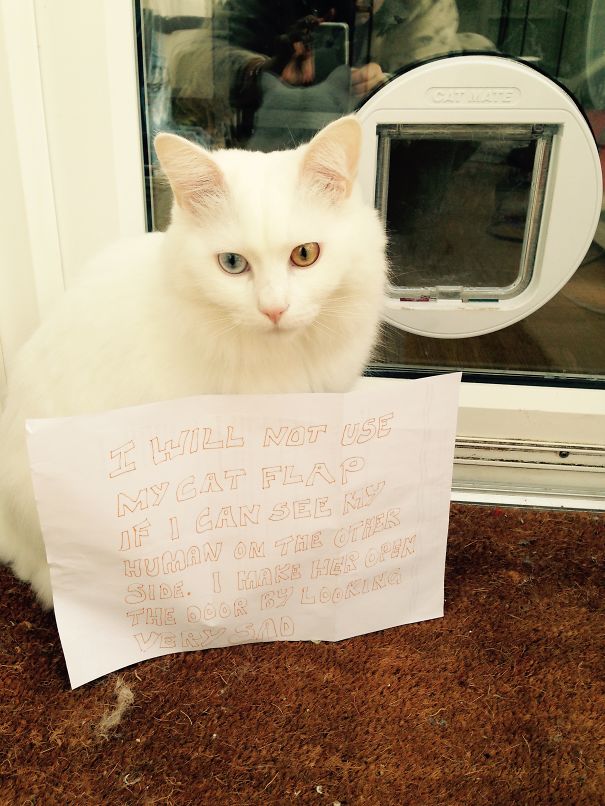 CAT MATE
I WILL NOT USE
MY CAT FLAP
IF I CAN SEE MY
HUMAN ON THE OTHER
SIDE. I MAKE HER OPEN
THE DOOR BY LOOKING
VERY SAD